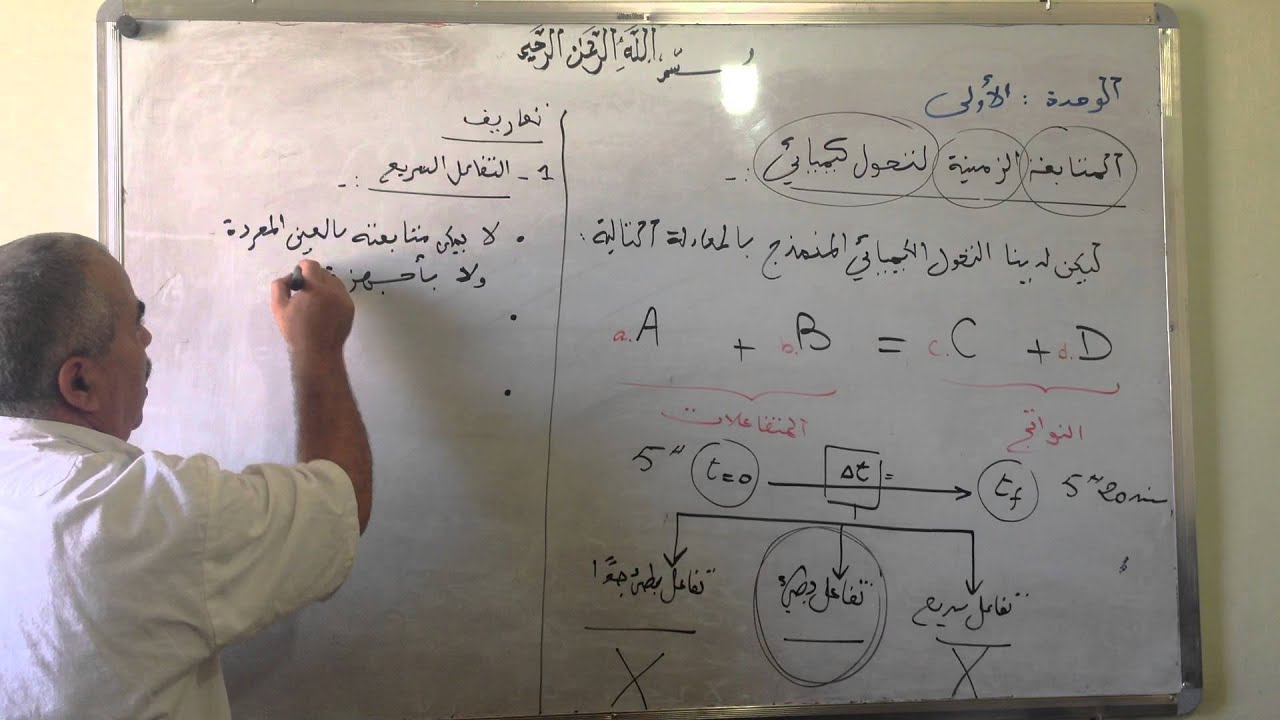 بسم الله الرحمن الرحيم
الوحدة : الأولى
المتابعة الزمنية لتحول كيميائي :-
ليكن لدينا التحول الكيميائي المنمذج بالمعادلة التالية :
a.A + b.B = c.C + d.D
المتفاعلات النواتج
5" t=0 Δt = tf 5" 20min
تفاعل سريع تفاعل بطيئ تفاعل بطيئ جدًا
X X
تعاريف
1 - التفاعل السريع :-
• لا يمكن متابعته بالعين المجردة
ولا بأجهز
•
•